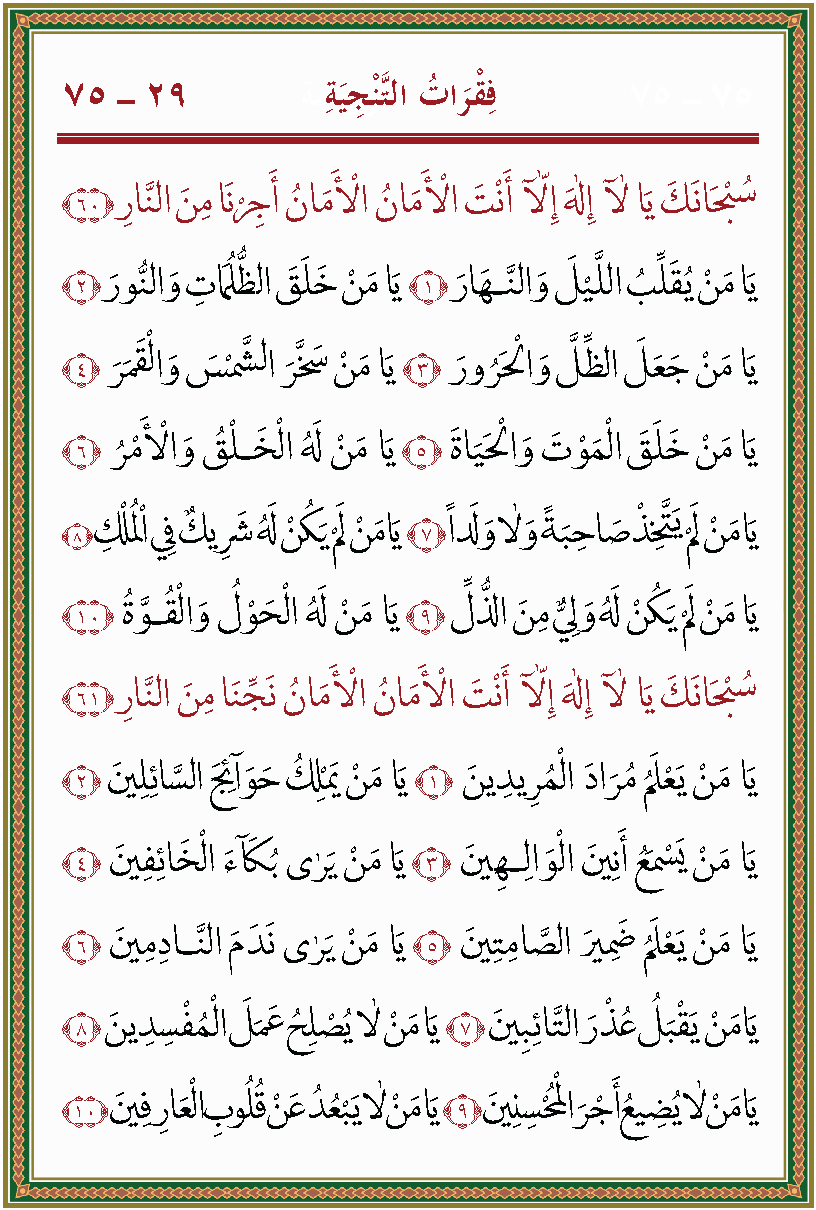 فِقْرَاتُ التَّنْجِيَةِ ٢٩ – ٧٥
سُبْحَانَكَ يَا لَٓا اِلٰهَ إِلَّآ أَنْتَ الْأَمَانُ الْأَمَانُ أَجِرْنَا مِنَ النَّارِ ﴿٦٠﴾
يَا مَنْ يُقَلِّبُ اللَّيْلَ وَالنَّهَارَ ﴿١﴾ يَا مَنْ خَلَقَ الظُّلُمَاتِ وَالنُّورَ ﴿٢﴾
يَا مَنْ جَعَلَ الظِّلَّ وَالْحَرُورَ ﴿٣﴾ يَا مَنْ سَخَّرَ الشَّمْسَ وَالْقَمَرَ ﴿٤﴾
يَا مَنْ خَلَقَ الْمَوْتَ وَالْحَيَاةَ ﴿٥﴾ يَا مَنْ لَهُ الْخَلْقُ وَالْأَمْرُ ﴿٦﴾
يَامَنْ لَمْ يَتَّخِذْ صَاحِبَةً وَلَا وَلَداً ﴿٧﴾ يَامَنْ لَمْ يَكُنْ لَهُ شَرِيكٌ فِي الْمُلْكِ ﴿٨﴾
يَا مَنْ لَمْ يَكُنْ لَهُ وَلِيٌّ مِنَ الذُّلِّ ﴿٩﴾ يَا مَنْ لَهُ الْحَوْلُ وَالْقُوَّةُ ﴿١٠﴾
سُبْحَانَكَ يَا لَٓا إِلٰهَ إِلَّآ أَنْتَ الْأَمَانُ الْأَمَانُ نَجِّنَا مِنَ النَّارِ ﴿٦١﴾
يَا مَنْ يَعْلَمُ مُرَادَ الْمُرِيدِينَ ﴿١﴾ يَا مَنْ يَمْلِكُ حَوَآئِجَ السَّائِلِينَ ﴿٢﴾
يَا مَنْ يَسْمَعُ أَنِينَ الْوَالِهِينَ ﴿٣﴾ يَا مَنْ يَرٰى بُكَآءَ الْخَائِفِينَ ﴿٤﴾
يَا مَنْ يَعْلَمُ ضَمِيرَ الصَّامِتِينَ ﴿٥﴾ يَا مَنْ يَرٰى نَدَمَ النَّادِمِينَ ﴿٦﴾
يَامَنْ يَقْبَلُ عُذْرَ التَّائِبِينَ ﴿٧﴾ يَامَنْ لَا يُصْلِحُ عَمَلَ الْمُفْسِدِينَ ﴿٨﴾
يَامَنْ لَا يُضِيعُ أَجْرَ الْمُحْسِنِينَ ﴿٩﴾ يَامَنْ لَا يَبْعُدُ عَنْ قُلُوبِ الْعَارِفِينَ ﴿١٠﴾